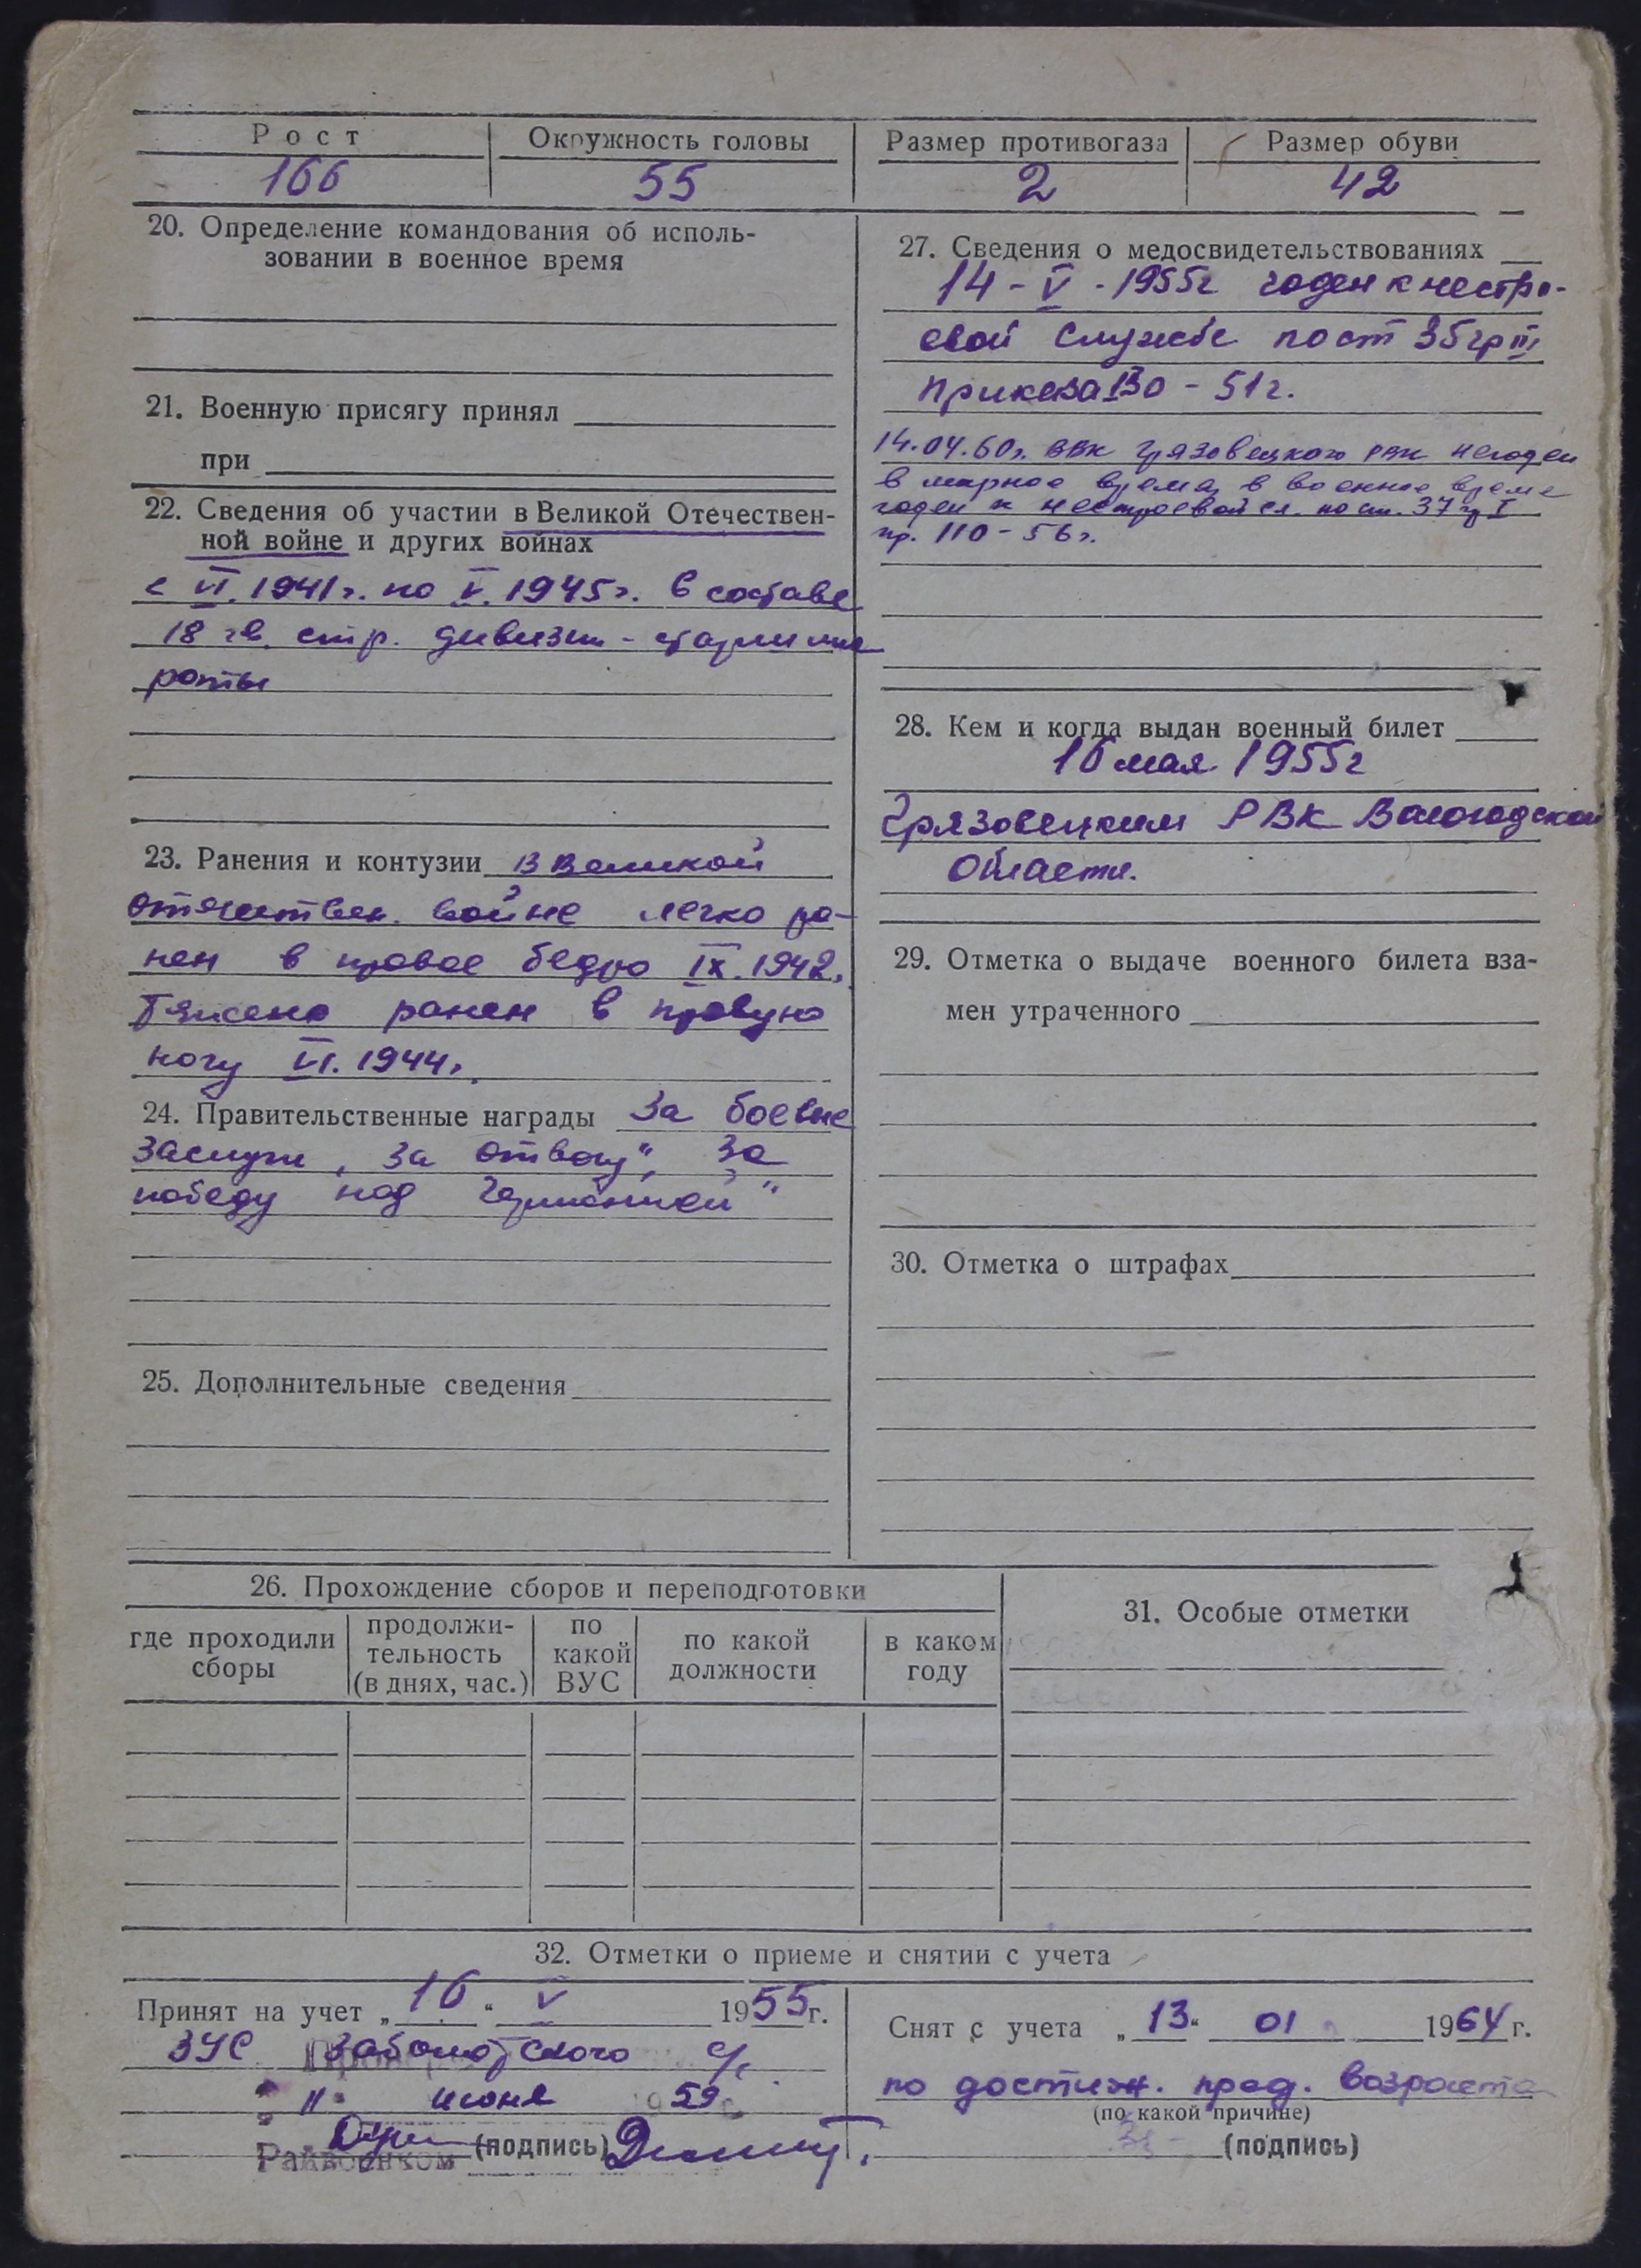 Рост Окружность головы Размер противогаза Размер обуви
166 55 2 42
20. Определение командования об исполь-
зовании в военное время
21. Военную присягу принял
при
22. Сведения об участии в Великой Отечествен-
ной войне и других войнах
с VI. 1941г. по V. 1945г. в составе
18 гв. стр. дивизии - старшина
роты
23. Ранения и контузии в Великой
отечествен. войне легко ра-
нен в правое бедро IX. 1942г.
Тяжело ранен в правую
ногу VI. 1944г.
24. Правительственные награды За боевые
заслуги, За отвагу", За
победу над Германией"
25. Дополнительные сведения
27. Сведения о медосвидетельствованиях
14 - V - 1955г годен к нестро-
евой службе по ст 35 гр III
приказа 130 - 51г.
14.04.60г. ВВК Грязовецкого РВК негоден
в мирное время, в военное время
годен к нестроевой сл. по ст. 37 гр I
пр. 110 - 56г.
28. Кем и когда выдан военный билет
16 мая 1955г
Грязовецким РВК Вологодской
области.
29. Отметка о выдаче военного билета вза-
мен утраченного
30. Отметка о штрафах
26. Прохождение сборов и переподготовки
где проходили сборы
продолжи-
тельность
(в днях, час.)
по
какой
ВУС
по какой
должности
в каком
году
31. Особые отметки
32. Отметки о приеме и снятии с учета
Принят на учет „16“ V 1955г.
ЗУС Заболотского с/с
" 11" июня 1959г
Райвоенком (подпись)
Снят с учета „13“ 01 1964г.
по достиж. пред. возраста
(по какой причине)
(подпись)